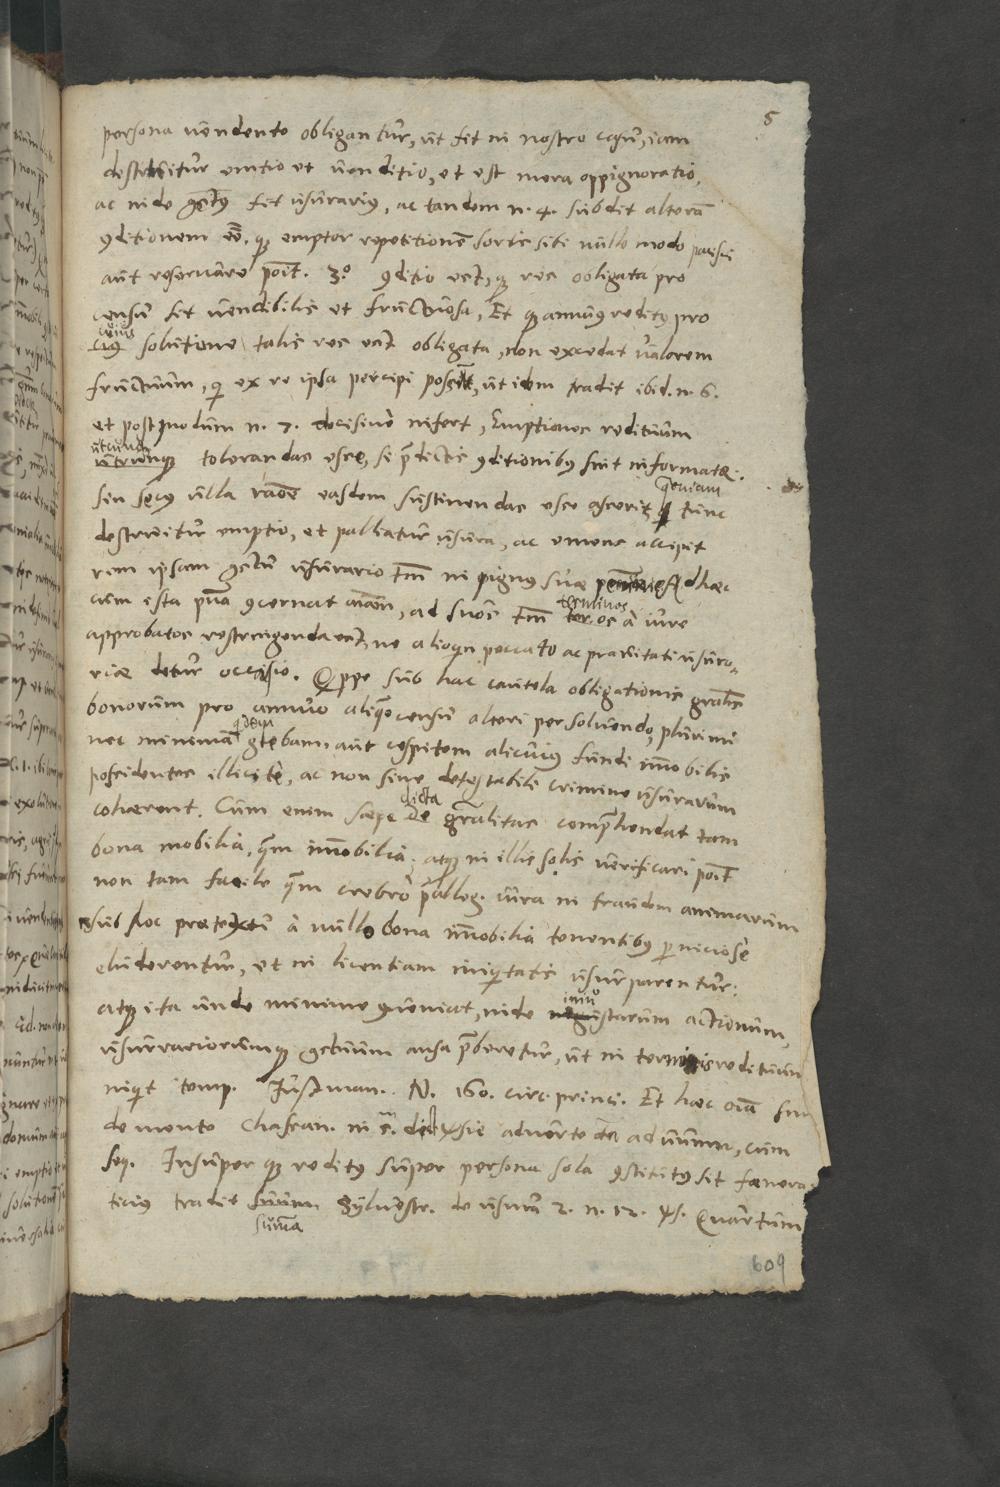 5
persona uendente obligantur, ut fit in nostro casu, iam
destruitur emtio et uenditio, et est mera oppignoratio,
ac inde gctus fit usurarius, ac tandem n. 4. subdit alterā
gditionem eē. qꝫ emptor repetitionē sortis sibi nullo modo pacisci
aut reseruare poīt. 3º gditio est, qꝫ res obligata pro
censu sit uendibilis et fructuosa, Et qꝫ annuus reditus pro
cuius solutione talis res est obligata, non excedat ualorem
fructuum, qi ex re ipsa percipi possēt, ut idem tradit ibid. n. 6.
et postmodum n. 7. decisiue infert, Emptiones redituum
utcunqꝫ tolerandas esse, si p̄dictis gditionibus sint informatæ:
sin secus ulla raōe easdem sustinendas esse asserit, quoniam tunc
destruitur emptio, et palliatur usura, ac emens accipit
rem ipsam gctu usurario tm̄ in pignus suæ Ad hæc
cum ista pn̄a gcernat aīam, ad suos tm̄ terminos a iure
approbatos restringenda est, ne alioqn peccato ac prauitati usura-
riæ detur occasio. Qippe sub hac cautela obligationis gralis
bonorum pro annuo aliquo censu alteri persoluendo, plurimi
nec minimā quidem glebam aut cespitem alicuius fundi im̄obilis
possidentes illicite, ac non sine detestabili crimine usurarum
cohærent. Cum enim sæpe dicta gralitas comp̄hendat tam
bona mobilia, qm im̄obilia, atqꝫ in illis solis uerificari poīt
non tam facile qm crebro p̄alleg. iura in fraudem animarum
sub hoc prætextu à nullo bona im̄obilia tenentibus perniciose
eluderentur, et in licentiam iniqitatis usurparentur:
atqꝫ ita unde minime gueniat, inde iniustarum actionum,
usurrariorumqꝫ gctuum ansa p̄beretur, ut in terminis redituum
inqit temp. Justinian. N. 160. circ. princi. Et hæc oīa sunt
de mente Chassan. in aduerte ad unum, cum
seq. Insuper qꝫ reditus super persona sola gstitutus sit fænera-
ticius tradit Syluestr. de usura 2. n. 12. Quartum
suma
609